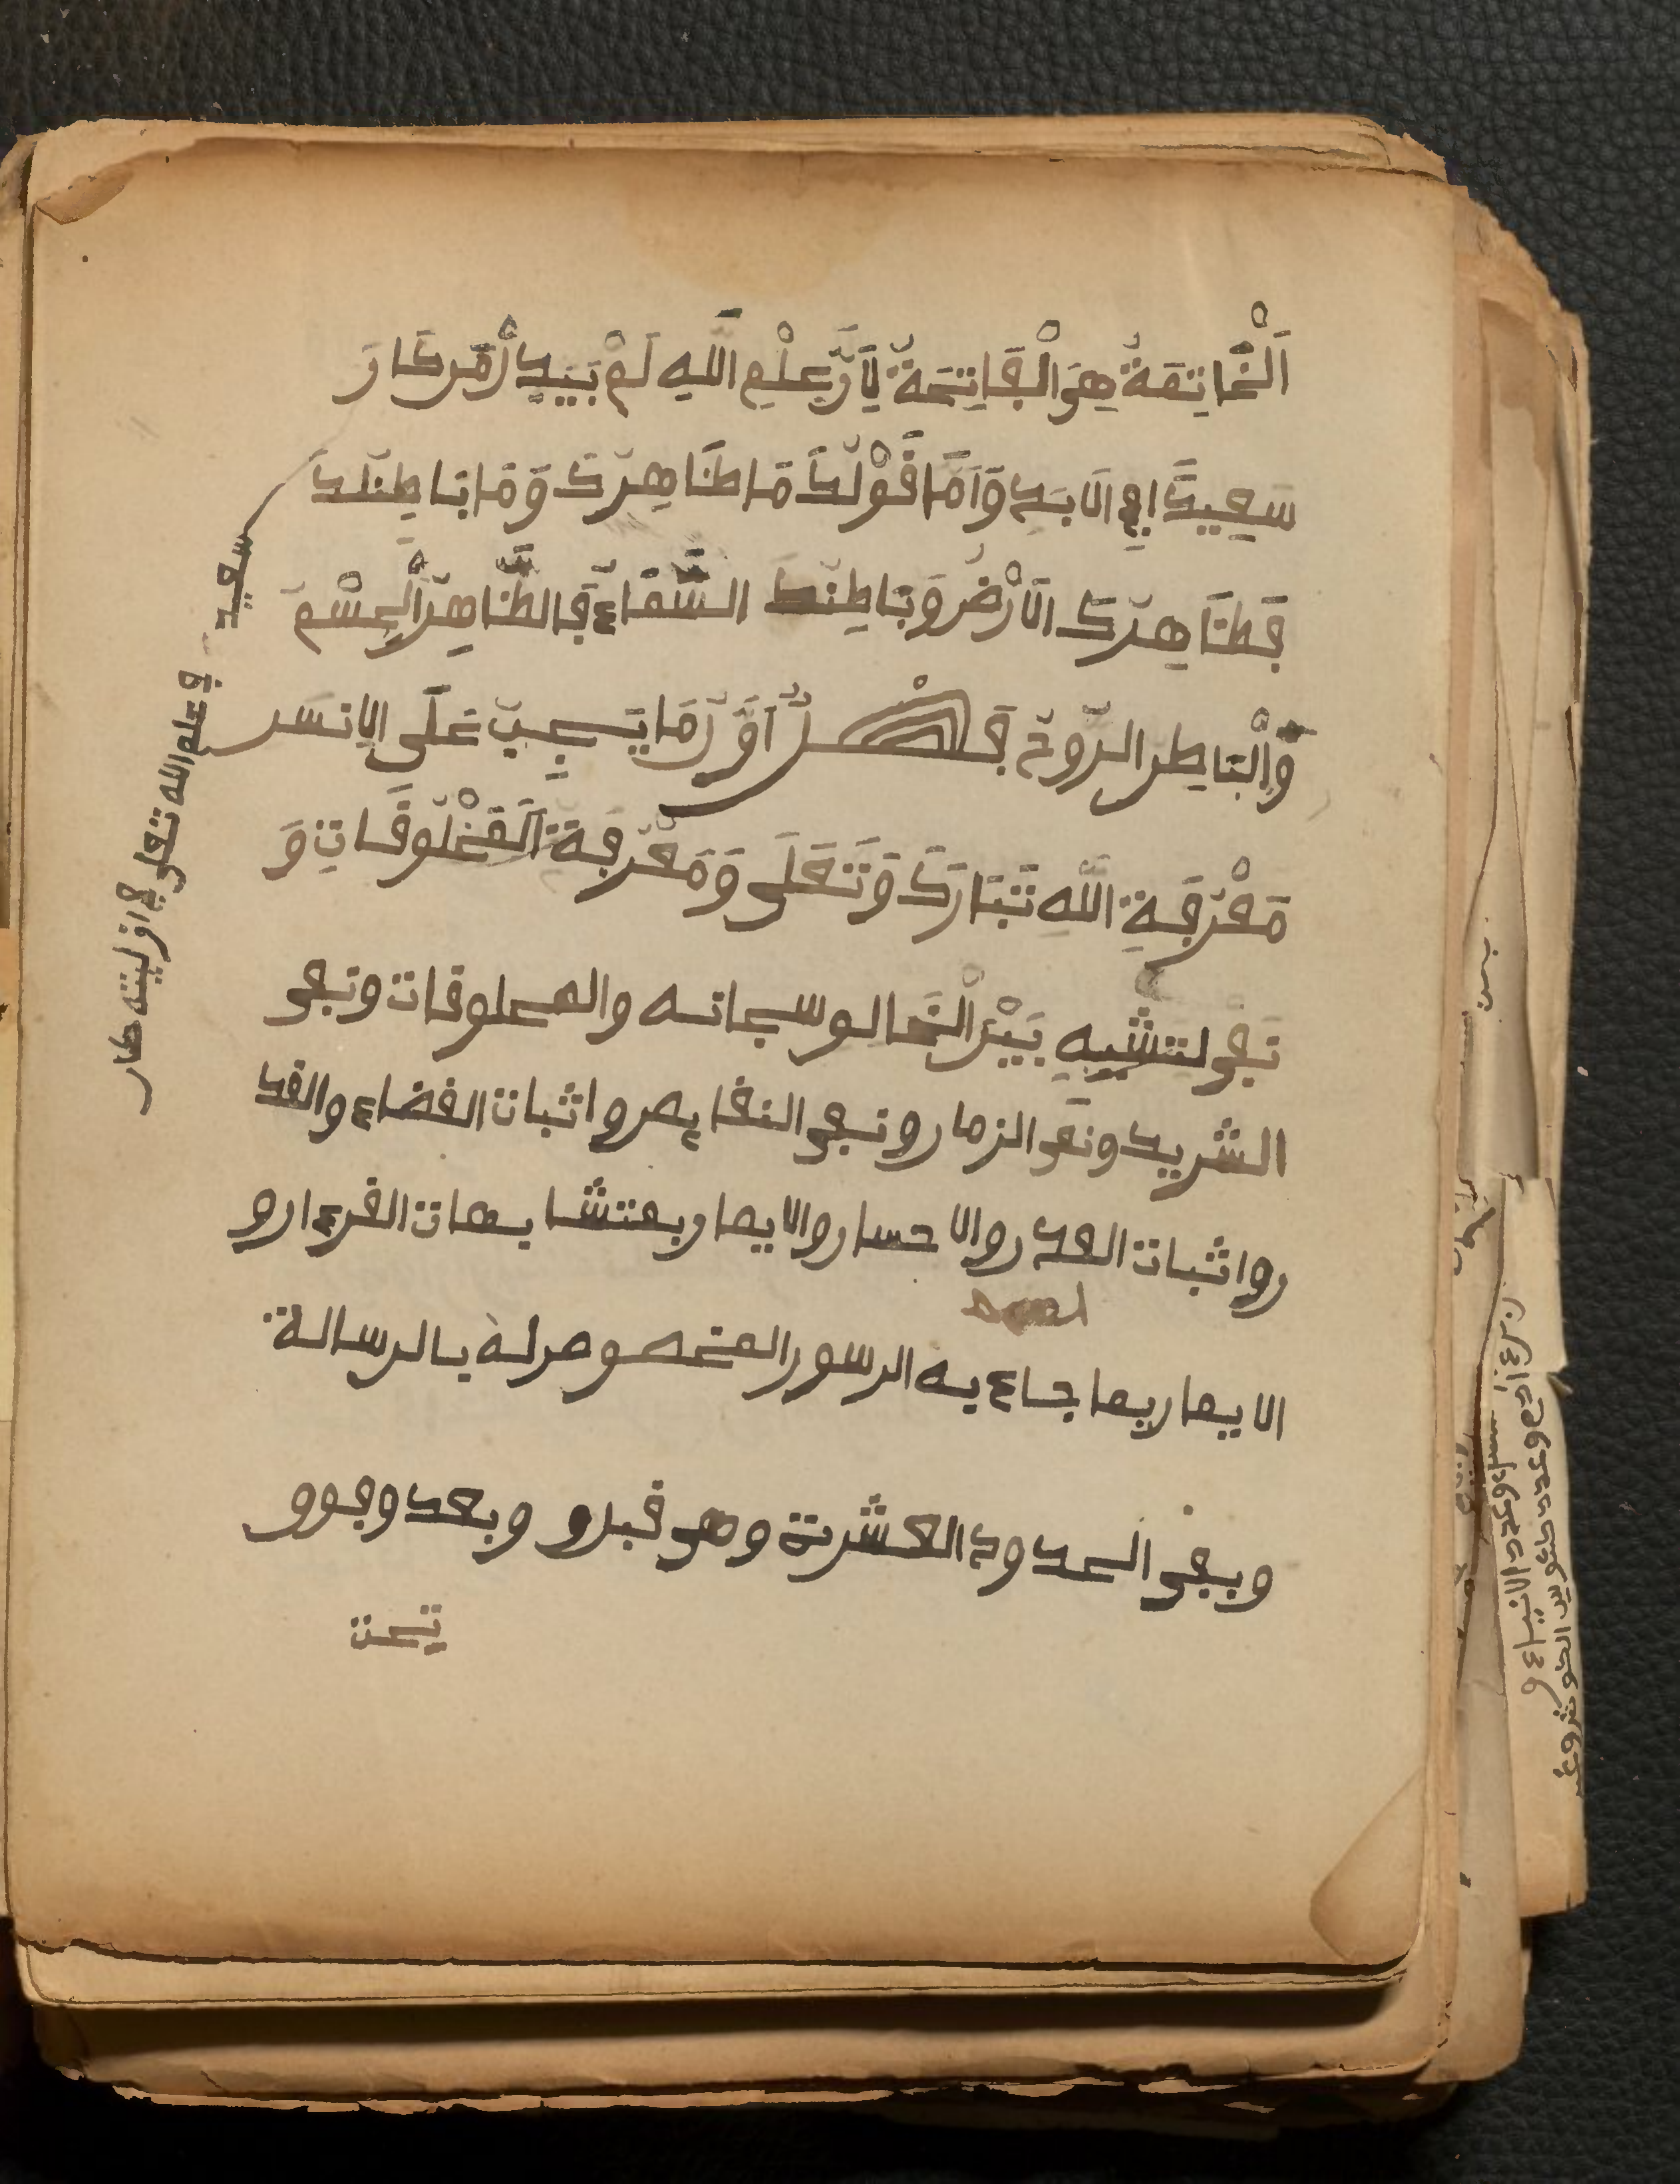 اَلْخَاتِمَةُ هِيَ الْفَاتِحَةُ لِأَنَّ عِلْمِ اللَّهِ لَمْ يَبِيدْ لْمَن كَانَ
سَعِيدًا اِلَى الْاَبَدِ وَاَمَّا قَوْلُكَ مَا ظَاهِرُكَ وَمَا بَاطِنُكَ
فَظَاهِرُكَ الْاَرْضُ وَبَاطِنُكَ السَّمَاءُ فَالظَّاهِرُ الْجِسْمُ
وَالْبَاطِنُ الرُّوحُ فَصْلٌ اَوَّلُ مَا يَجِبُ عَلَى الْاِنْسَنِ
مَعْرِفَةِ اللَّهِ تَبَارَكَ وَتَعَلَى وَمَعْرِفَةَ الْمَخْلُوقَاتِ وَ
نَفْى لتشبيهِ بَيْنَ الْخَالق سبحانه والمخلوقات ونفى
الشريك ونفى الزمان ونفى النقايص واثبات القضاء والقد
ر واثبات القدر والاحسان والايمان بمتشابهات القرءان و
الايمان بما جاء به الرسول المخصوص له بالرسالة
وبقى الحدود العشرة وهى قبل و وبعد وفوق
تحت
سعيد
فى علم الله تعلى فى ازليته كان